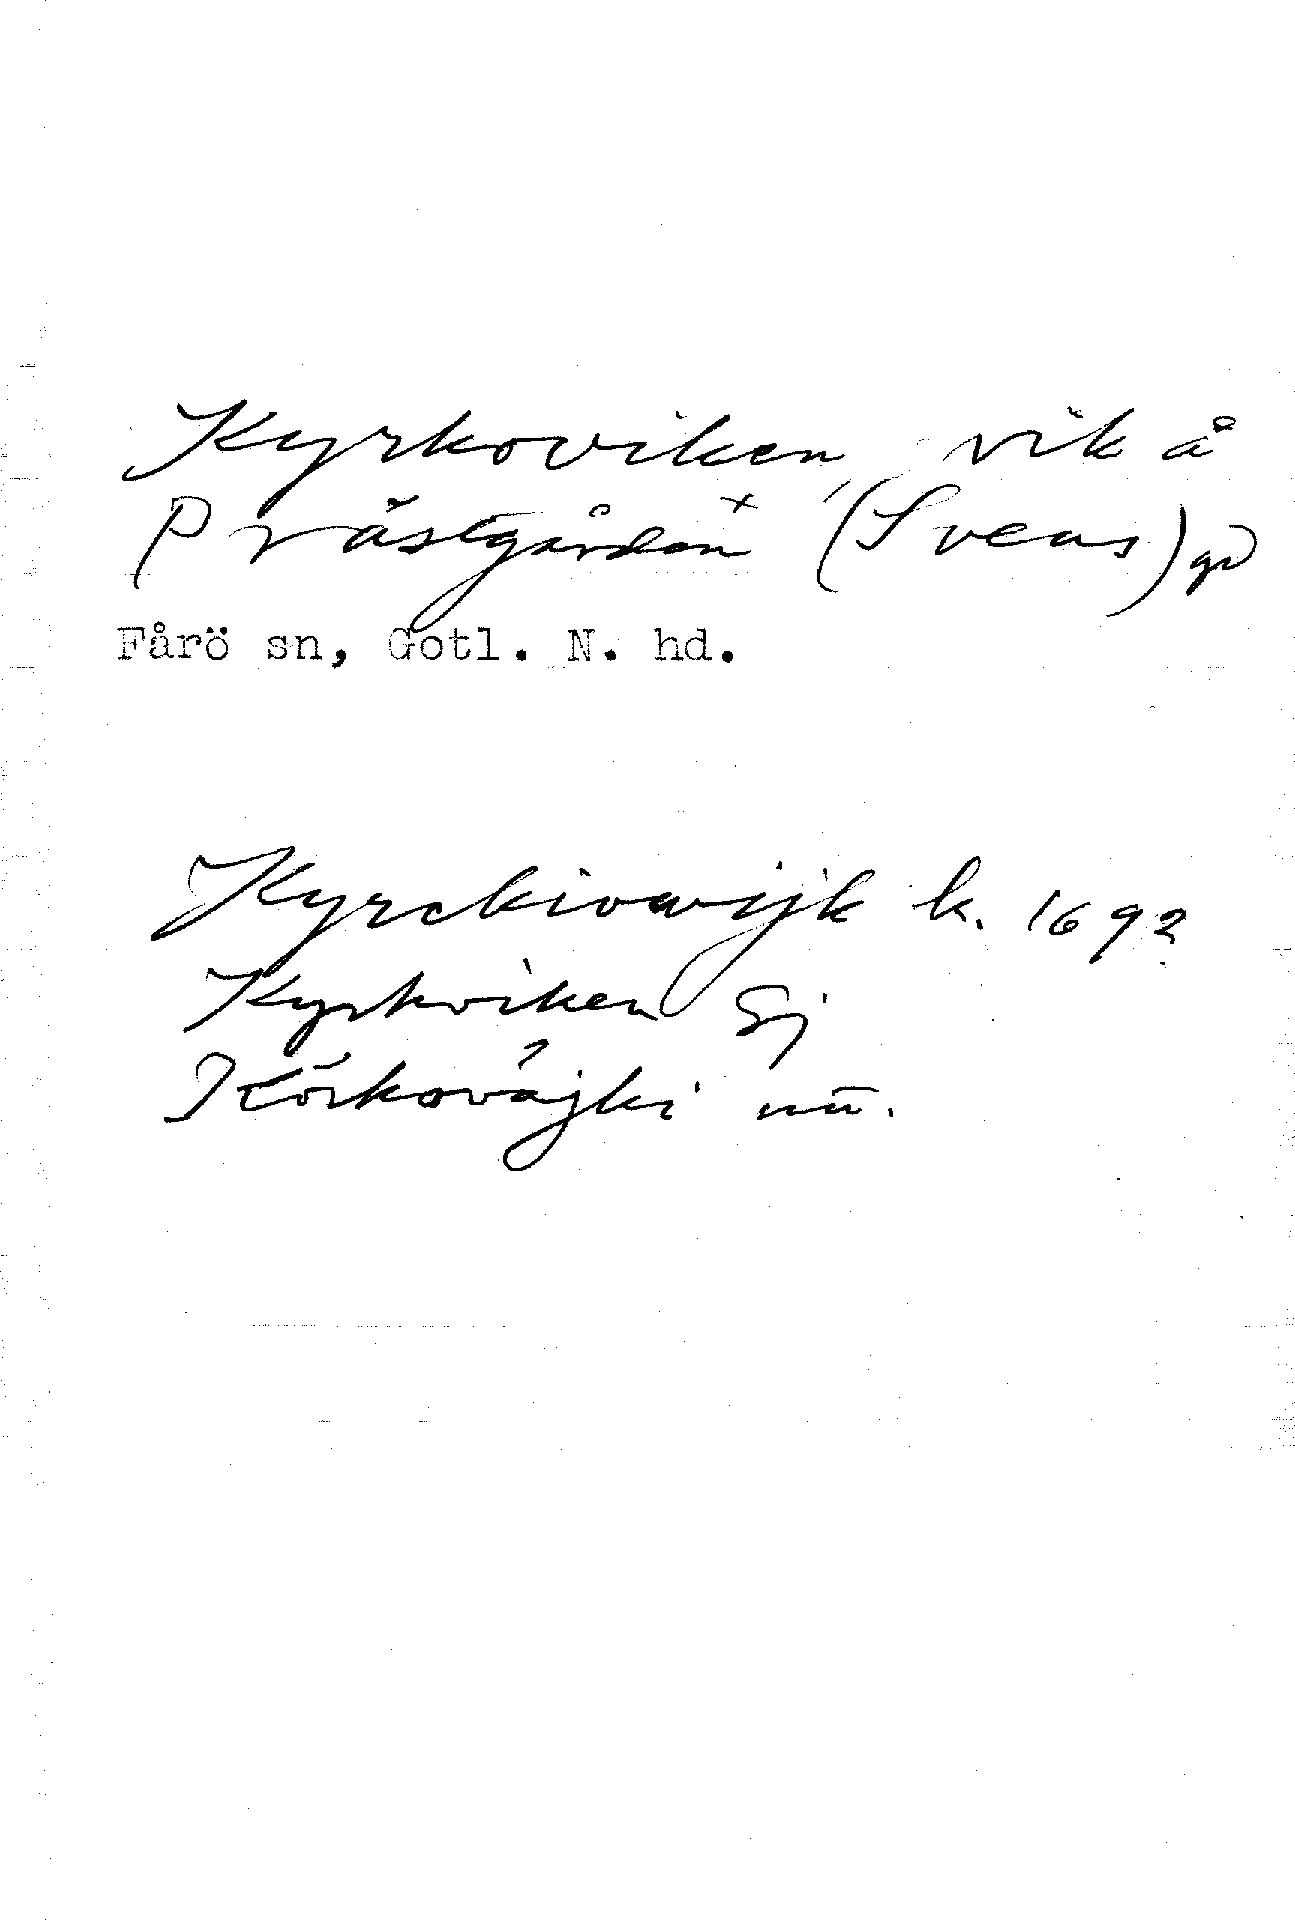 Kyrkoviken, vik å
Prästgården × (Svens) gd
Fårö sn, Gotl. N. hd.
Kyrckiowijk k. 1692
Kyrkviken Sj
Körkoväjki